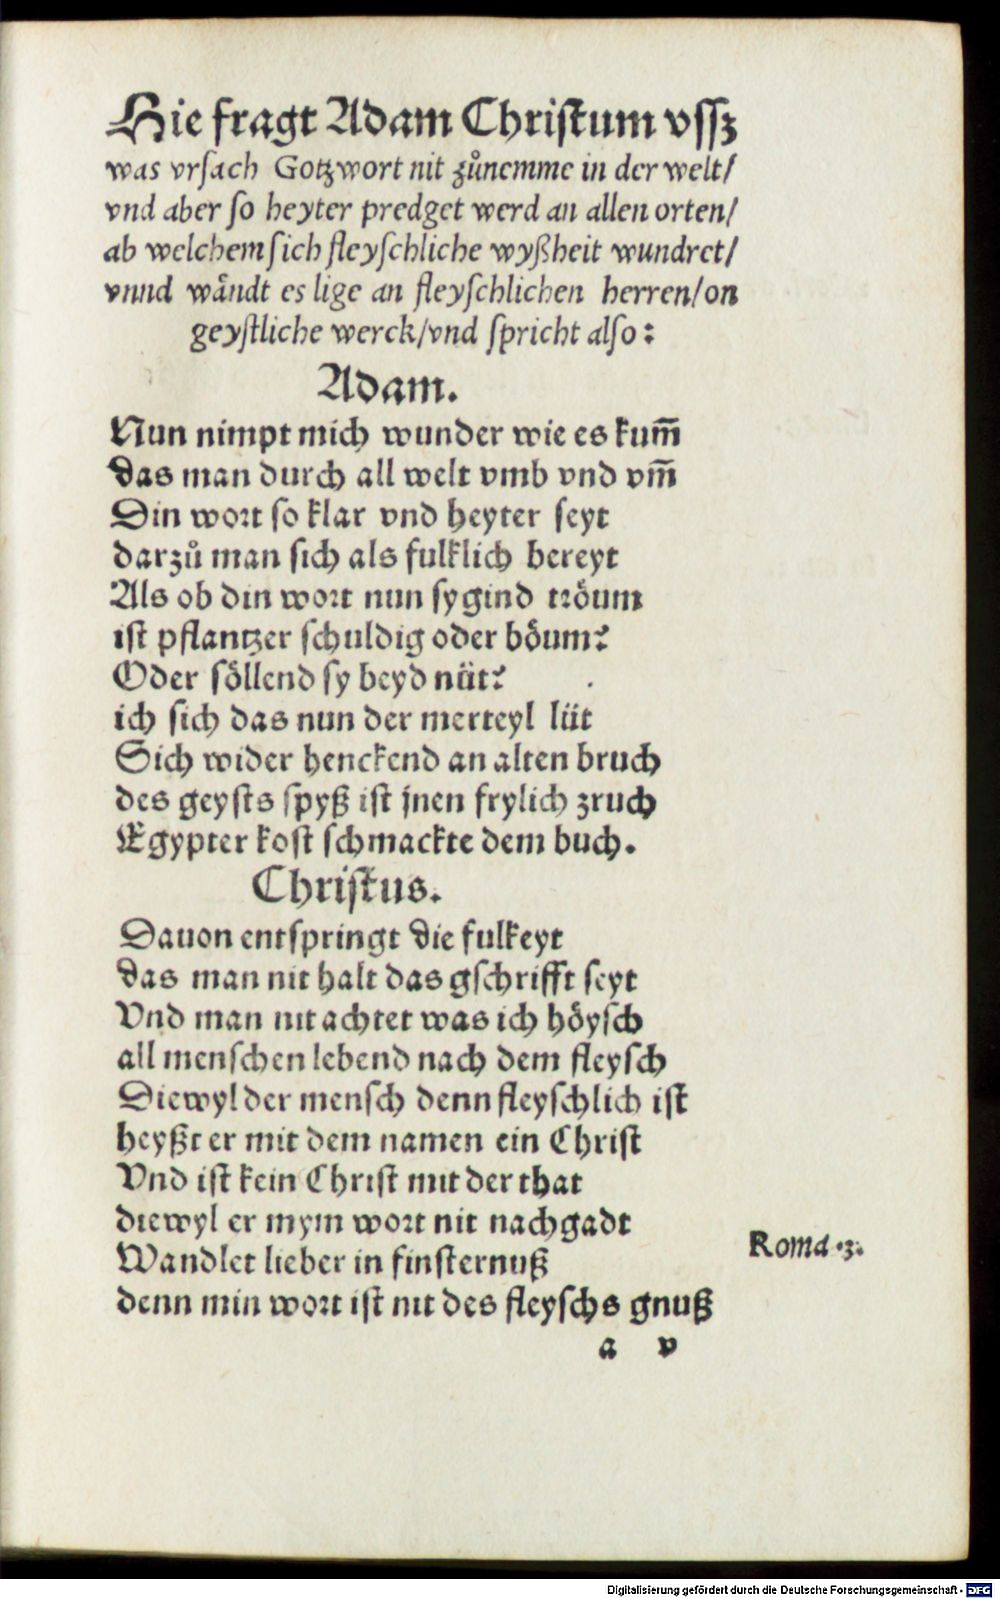 Hie fragt Adam Christum vſſz
was vrſach Gotzwort nit zůnemme in der welt/
vnd aber ſo heyter predget werd an allen orten/
ab welchem ſich fleyſchliche wyßheit wundret/
vnnd wändt es lige an fleyſchlichen herren/on
geyſtliche werck/vnd ſpricht alſo:
Adam.
Nun nimpt mich wunder wie es kum̃
das man durch all welt vmb vnd vm̃
Din wort ſo klar vnd heyter ſeyt
darzů man ſich als fulklich bereyt
Als ob din wort nun ſygind tröum
iſt pflantzer ſchuldig oder böum?
Oder ſöllend ſy beyd nüt?
ich ſich das nun der merteyl lüt
Sich wider henckend an alten bruch
des geyſts ſpyß iſt jnen frylich zruch
Egypter koſt ſchmackte dem buch.
Chriſtus.
Dauon entſpringt die fulkeyt
das man nit halt das gſchrifft ſeyt
Vnd man nit achtet was ich höyſch
all menſchen lebend nach dem fleyſch
Diewyl der menſch denn fleyſchlich iſt
heyßt er mit dem namen ein Chriſt
Vnd iſt kein Chriſt mit der that
diewyl er mym wort nit nachgadt
Wandlet lieber in finſternuß
Roma .3.
denn min wort iſt nit des fleyſchs gnuß
a v
Digitalisierung gefördert durch die Deutsche Forschungsgemeinschaft - DFG